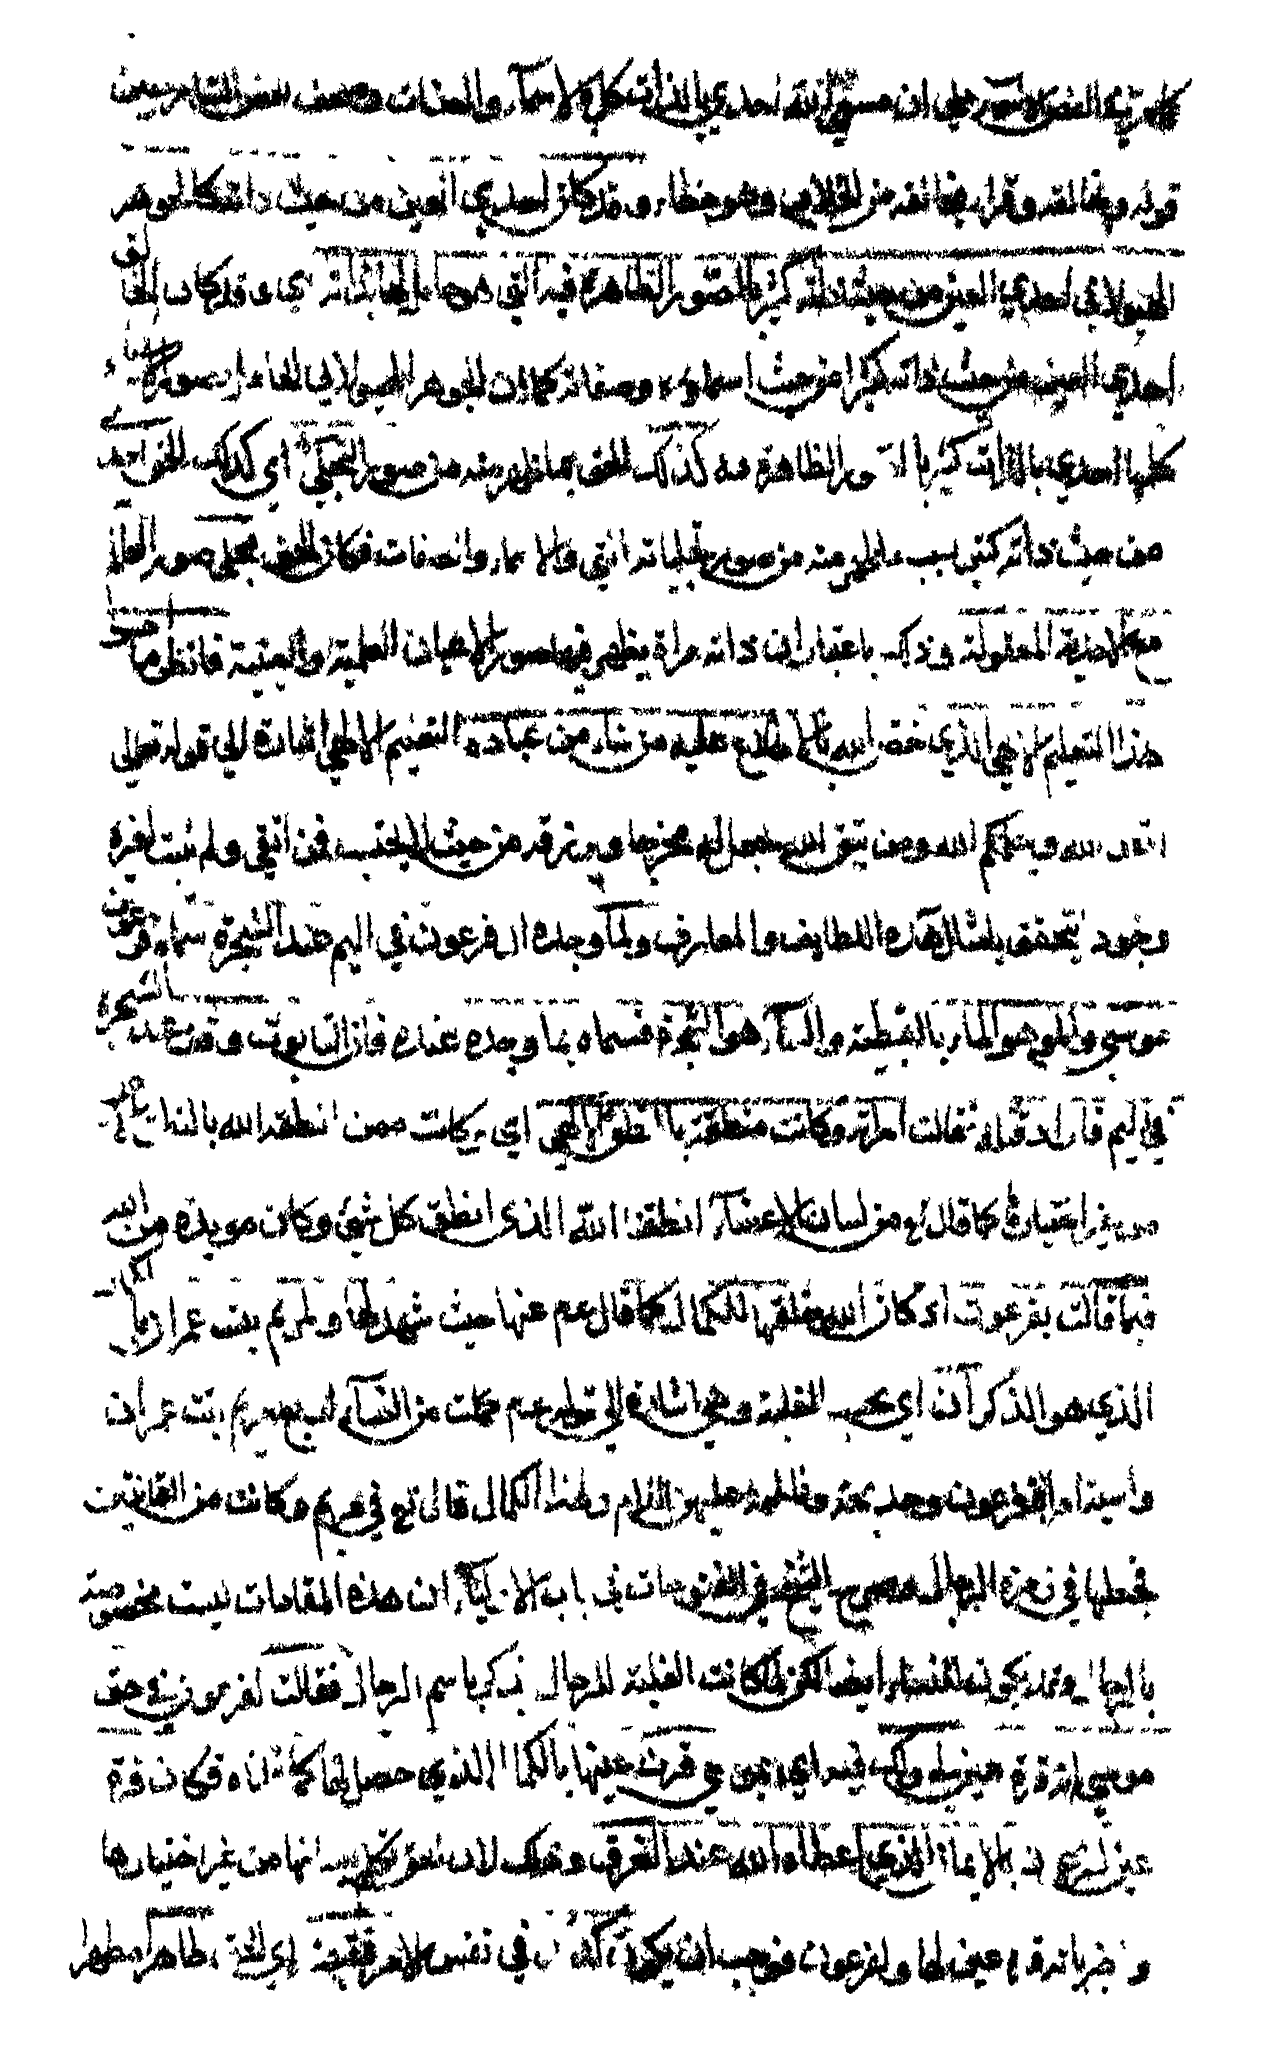 على ان مسمى الله احدي بالذات كل بالاسماء والصفات وصحف بعض الشارحين
قوله وخالفه وقراء بخالفه من الخلاف وهو خطاء وقد كان احدي العين من حيث ذاته كالجوهر
الهيولاني احدي العين من حيث ذاته كثير بالصور الظاهرة فيه التي هو حامل لها بذاته اي وقد كان الحق
احدي العين من حيث ذاته كثيرا من حيث اسماؤه وصفاته كما ان الجوهر الهيولاني القابل لصور
كلها احدي بالذات كثير بالصور الظاهرة فيه كذلك الحق بما ظهر منه من صور التجلي اي كذلك الحق احدي
من حيث ذاته كثير بسبب ما ظهر منه من صور تجلياته التي والاسماء والصفات فكان الحق مجلى صور العالم
مع الاحدية المعقولة وذلك باعتبار ان ذاته مراة يظهر فيها صور الاعيان العلمية والعينية فانظر ما احسن
هذا التعليم الالهي الذي خص الله بالاطلاع عليه من شاء من عباده التعليم الالهي اشارة الى قوله تعالى
اتقوا الله ويعلمكم الله ومن يتق الله يجعل له مخرجا ويرزقه من حيث لا يحتسب فمن اتقى ولم يثبت لغيره
وجود يتحقق بامثال هذه اللطايف والمعارف ولما وجده آل فرعون في اليم عند الشجرة سماه فرعون
موسى والمو هو الماء بالقبطية والسا هو الشجرة فسماه بما وجده عنده فان التابوت وقف عند الشجرة
في اليم فاراد قتله فقالت امراته وكانت منطقة بالنطق الالهي اي كانت ممن انطقه الله
من غير اختيار كما قال تع من لسان الاعضاء انطقنا الله الذى انطق كل شيئ وكانت مويدة من الله
فيما قالت لفرعون اذ كان الله خلقها للكمال كما قال عم عنها حيث شهد لها ولمريم بنت عمران بالكمال
الذي هو للذكرآن اي بحسب الغلبة وهي اشارة الى قوله عم كملت من النساء اربع مريم بنت عمران
واسية امراة فرعون وخديجة وفاطمة عليهن السلام ولهذا الكمال قال تع في مريم وكانت من القانتين
فجعلها في زمرة الرجال وصرح الشيخ في الفتوحات في باب الاولياء ان هذه المقامات ليست مخصوصة
بالرجال وقد يكون للنساء ايضا لكن لما كانت الغلبة للرجال يذكر باسم الرجال فقالت لفرعون في حق
موسى انه قرة عين لي ولك فيه اي بموسى قرت عينها بالكمال الذي حصل لها كما قلناه وكان قرة
عين لفرعون بالايمان الذي اعطاه الله عند الغرق وذلك لان الحق تكلم بلسانها من غير اختيارها
واخبر بانه قرة عين لها ولفرعون فوجب ان يكون كذلك في نفس الامر فقبضه اي الله طاهرا مطهرا